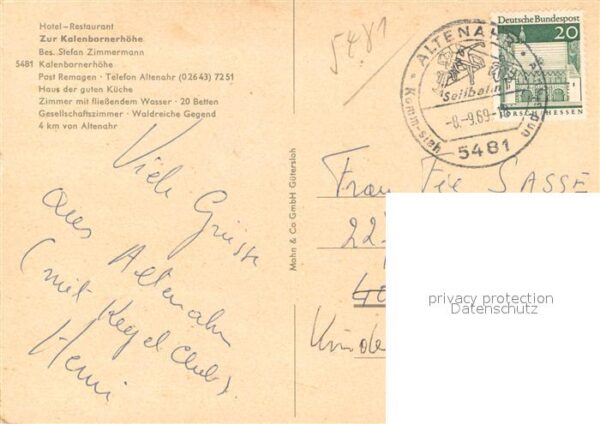 Hotel-Restaurant
Zur Kalenbornerhöhe
Bes. Stefan Zimmermann
5481 Kalenbornerhöhe
Post Remagen · Telefon Altenahr (02643) 7251
Haus der guten Küche
Zimmer mit fließendem Wasser · 20 Betten
Gesellschaftszimmer · Waldreiche Gegend
4 km von Altenahr
5481
Deutsche Bundespost
20
LORSCH/HESSEN
ALTENAHR
Seilbahn
-8.-9.69
Komm-sieh
und
5481
Viele Grüsse
aus Altenahr
(mit Kegelclub).
Mohn & Co GmbH Gütersloh
Frau SASSE
22
Kinde
privacy protection
Datenschutz